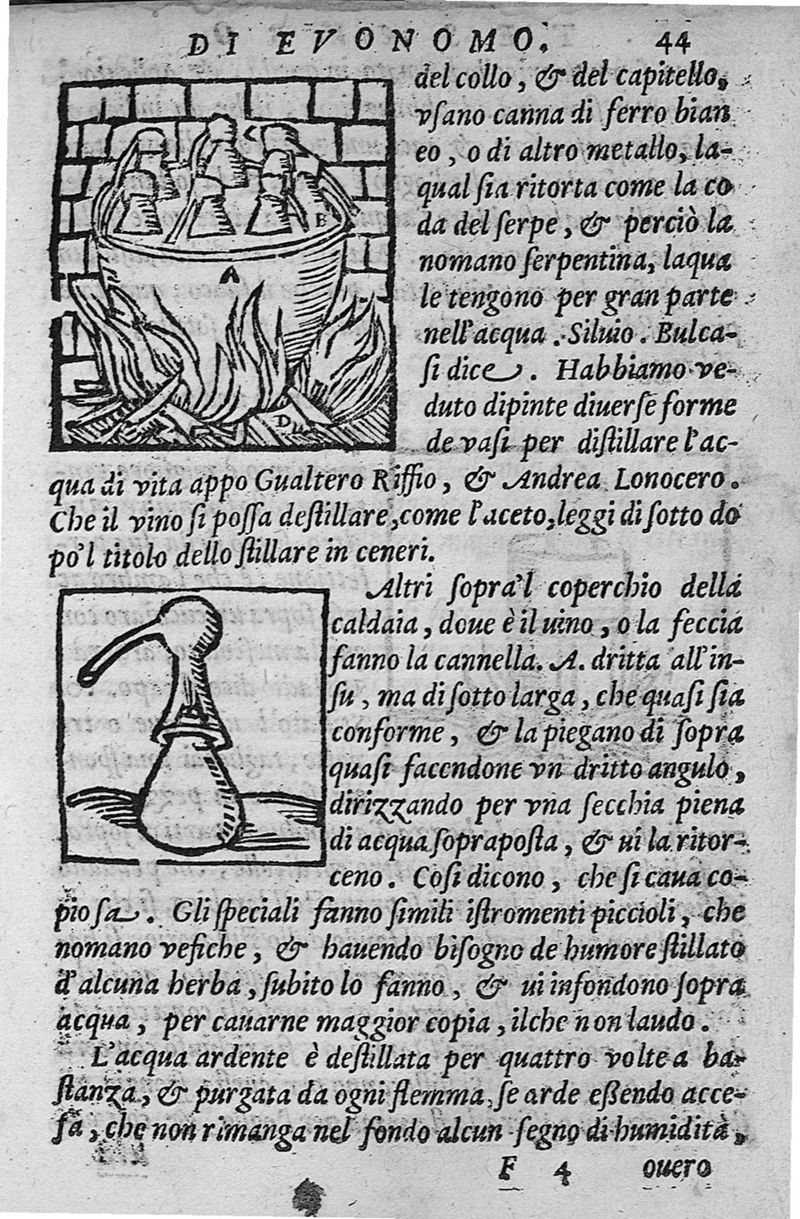 DI EVONOMO. 44
del collo, & del capitello,
vſano canna di ferro bian
co, o di altro metallo, la-
qual ſia ritorta come la co
da del ſerpe, & perciò la
nomano ſerpentina, laqua
le tengono per gran parte
nell'acqua. Siluio. Bulca-
ſi dice. Habbiamo ve-
duto dipinte diuerſe forme
de vaſi per diſtillare l'ac-
qua di vita appo Gualtero Riffio, & Andrea Lonocero.
Che il vino ſi poſſa deſtillare, come l'aceto, leggi di ſotto do
po'l titolo dello ſtillare in ceneri.
A
B
C
D
Altri ſopra'l coperchio della
caldaia, doue è il uino, o la feccia
fanno la cannella. A. dritta all'in-
ſu, ma di ſotto larga, che quaſi ſia
conforme, & la piegano di ſopra
quaſi facendone vn dritto angulo,
dirizzando per vna ſecchia piena
di acqua ſoprapoſta, & ui la ritor-
ceno. Coſi dicono, che ſi caua co-
pioſa. Gli ſpeciali fanno ſimili iſtromenti piccioli, che
nomano veſiche, & hauendo biſogno de humore ſtillato
d'alcuna herba, ſubito lo fanno, & ui infondono ſopra
acqua, per cauarne maggior copia, ilche non laudo.
L'acqua ardente è deſtillata per quattro volte a ba-
ſtanza, & purgata da ogni flemma, ſe arde eßendo acce-
ſa, che non rimanga nel fondo alcun ſegno di humidità,
F 4 ouero